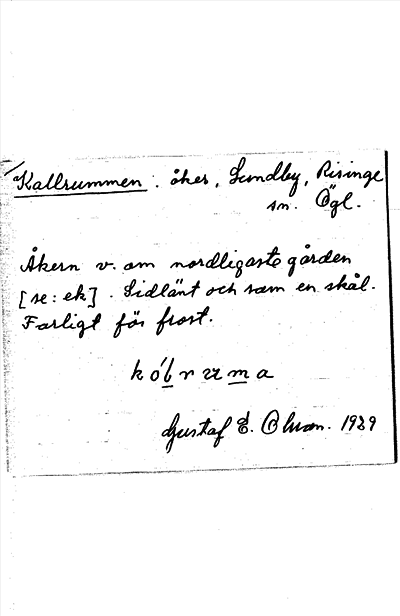 Kallrummen. åker, Lundby, Risinge
sn. Ögl.
Åkern v. om nordligaste gården
[se: ek]. Sidlänt och som en skål.
Farligt för frost.
Gustaf E. Ohman. 1939